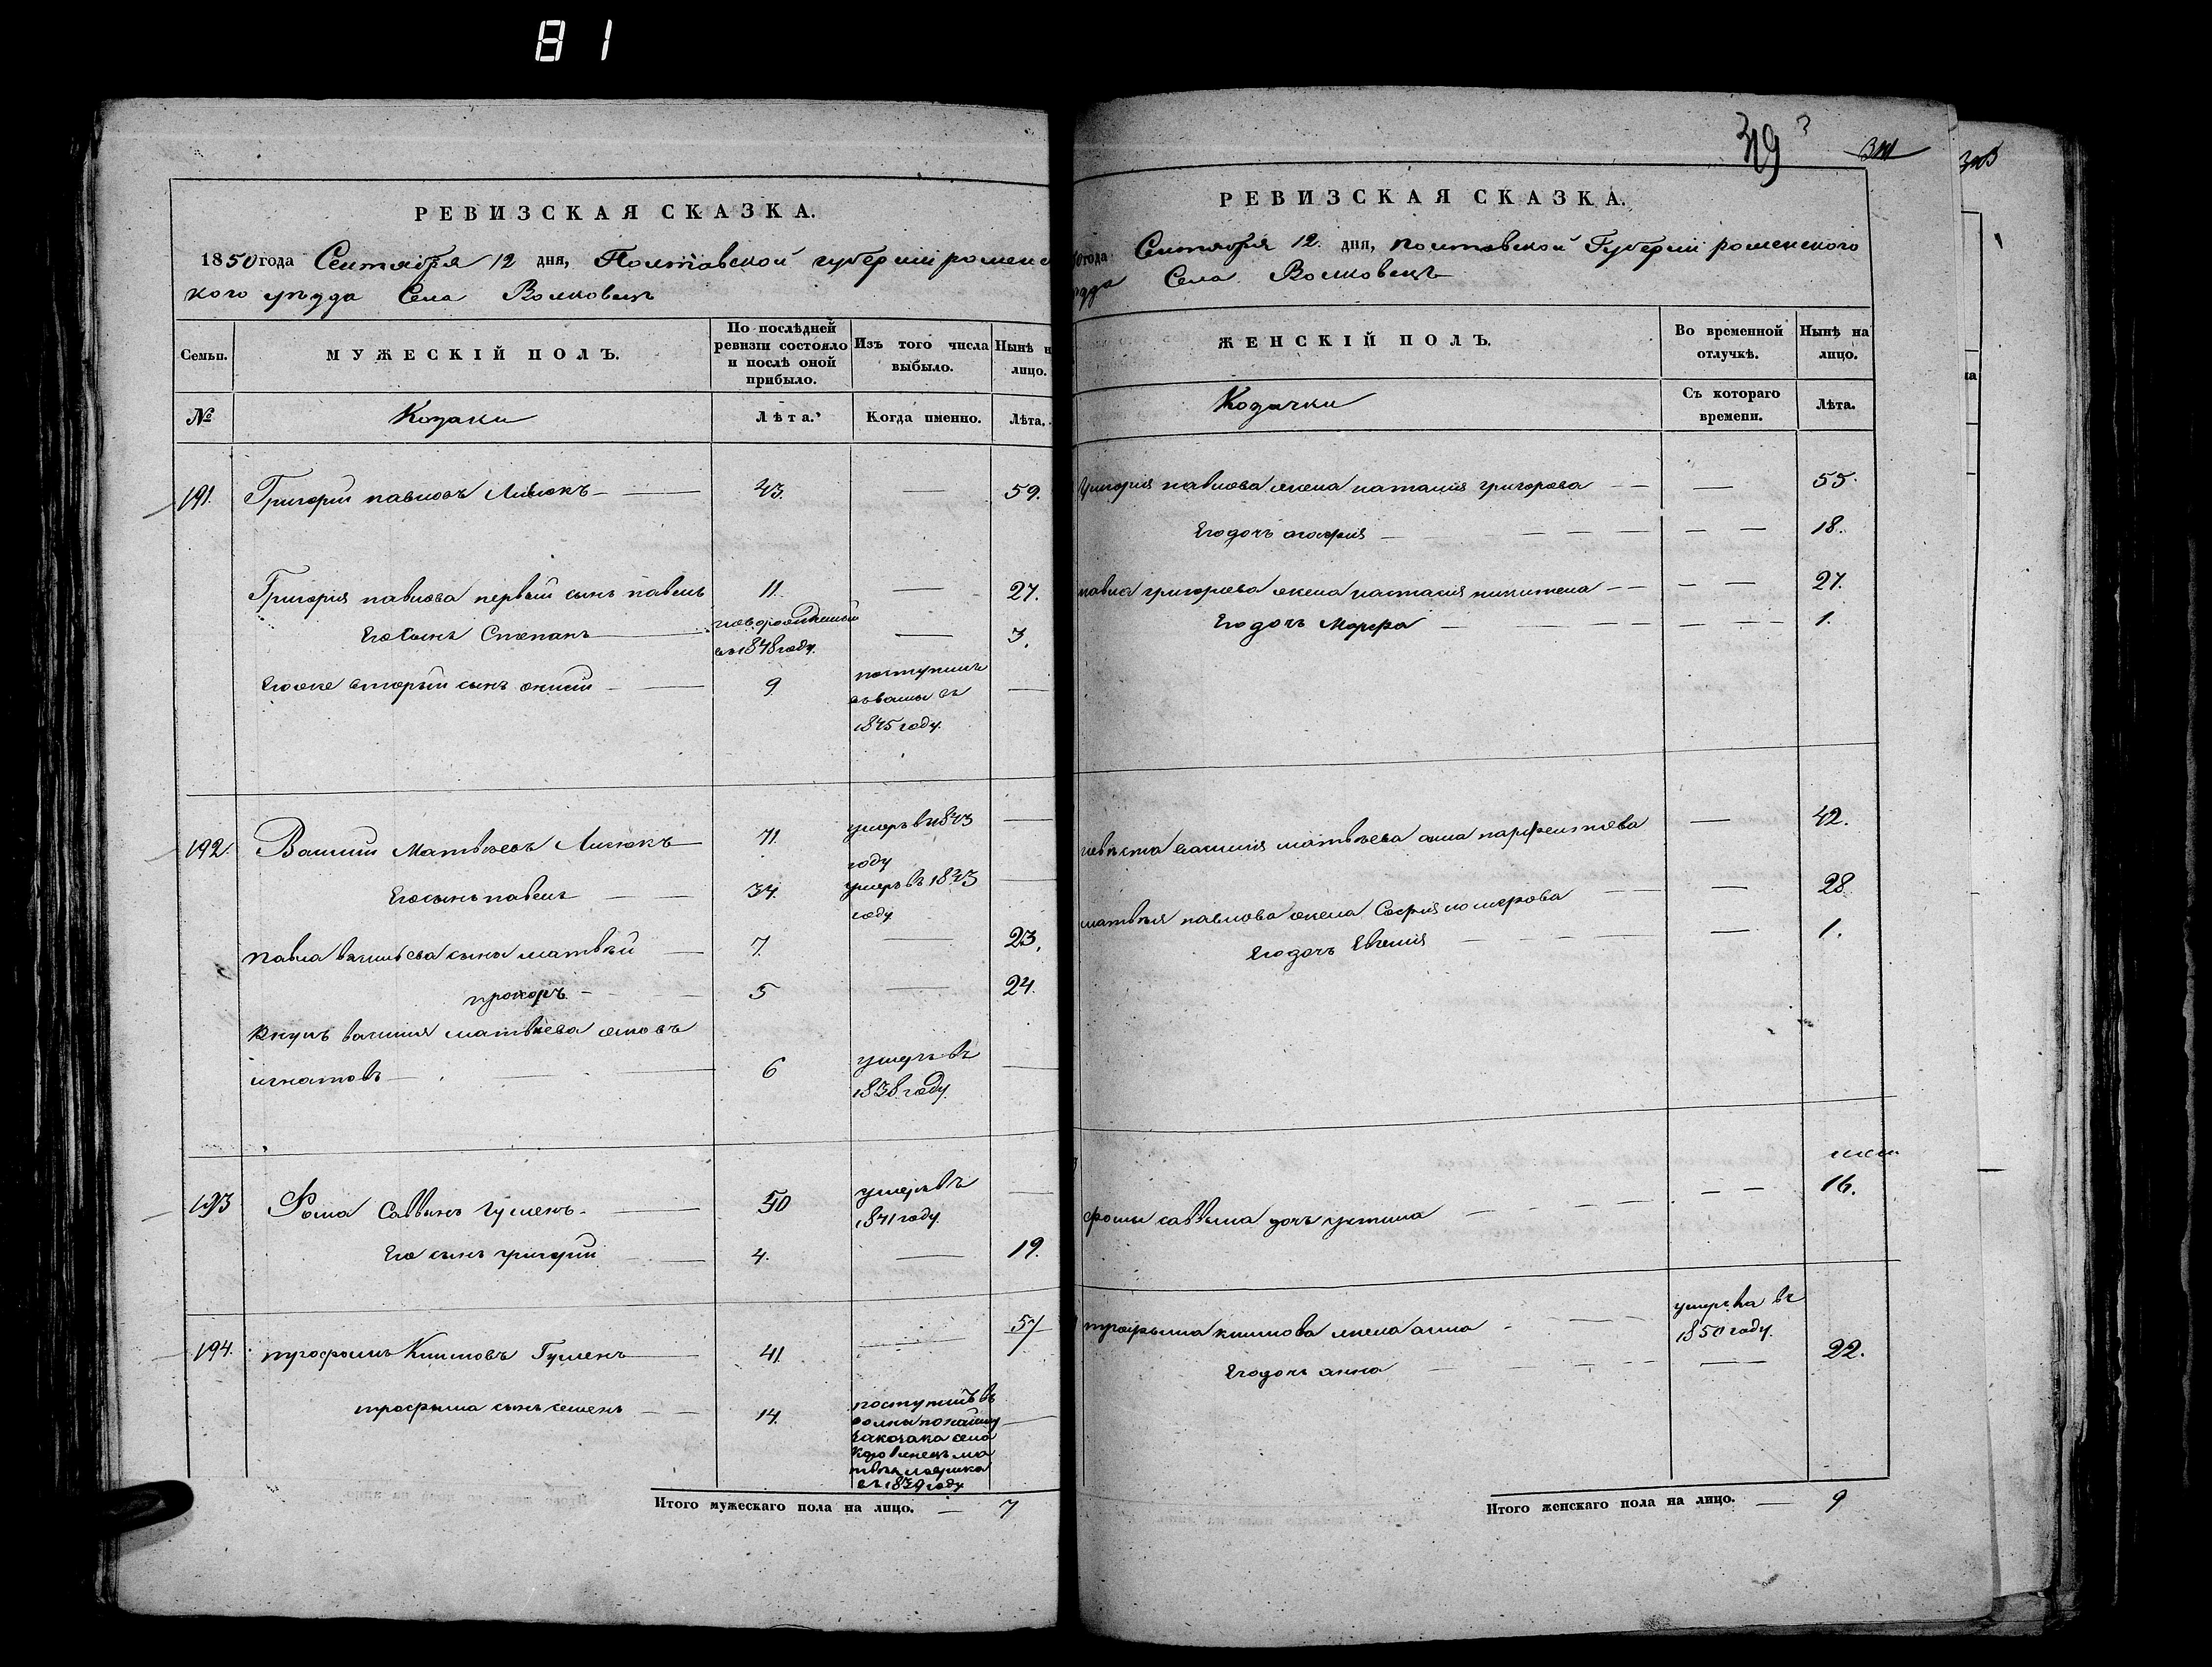 81
РЕВИЗСКАЯ СКАЗКА.
1850 года Сентября 12 дня, Полтавской губернии роменс
кого уезда Села Волковецъ
Семьи.
МУЖЕСКІЙ ПОЛЪ.
По послѣдней ревизіи состояло и послѣ оной прибыло.
Изъ того числа выбыло.
Нынѣ на лицо.
№
Козаки
Лѣта.
Когда именно.
Лѣта.
191. Григорій павловъ — 43. — 59.
Григорія павлова первый сынъ павелъ 11. — 27.
Его сынъ Степанъ — новорожденный въ 1848 году. — 3.
Его же второй сынъ — 9 поступилъ въ 1845 году. —
192. Василій Матвѣевъ — 71. умеръ в 1843 году —
Его сынъ павелъ — 34. умеръ въ 1843 году —
павла васильева сыны матвѣй — 7. — 23.
прохоръ — 5 — 24.
Внукъ василія матвѣева яковъ
игнатовъ — 6 умеръ въ 1838 году. —
193 Фома Саввинъ Гуменъ — 50 умеръ въ 1841 году. —
Его сынъ григорій — 4. — 19.
194. трофимъ Климовъ Гуменъ — 41. — 57
трофима сынъ семенъ — 14. поступилъ въ
козака села
въ 1839 году —
Итого мужескаго пола на лицо. — 7
319
РЕВИЗСКАЯ СКАЗКА.
50 года Сентября 12. дня, полтавской Губерніи роменского
Села Волковецъ
ЖЕНСКІЙ ПОЛЪ.
Во временной отлучкѣ.
Нынѣ на лицо.
Козачки
Съ котораго времени.
Лѣта.
Григорія павлова жена наталія григорьева — — 55.
Его дочь агафія — — 18.
павла григорьева жена настасія никитина — — 27.
Его дочь Марфа — — 1.
невѣстка василія матвѣева анна — 42.
матвѣя павлова жена Софія — — 28.
Его дочь Евгенія — — 1.
фомы саввина дочь устина — — 16.
трофима климова жена анна — умерла въ 1850 году.
Его дочь анна — — 22.
Итого женскаго пола на лицо. — 9